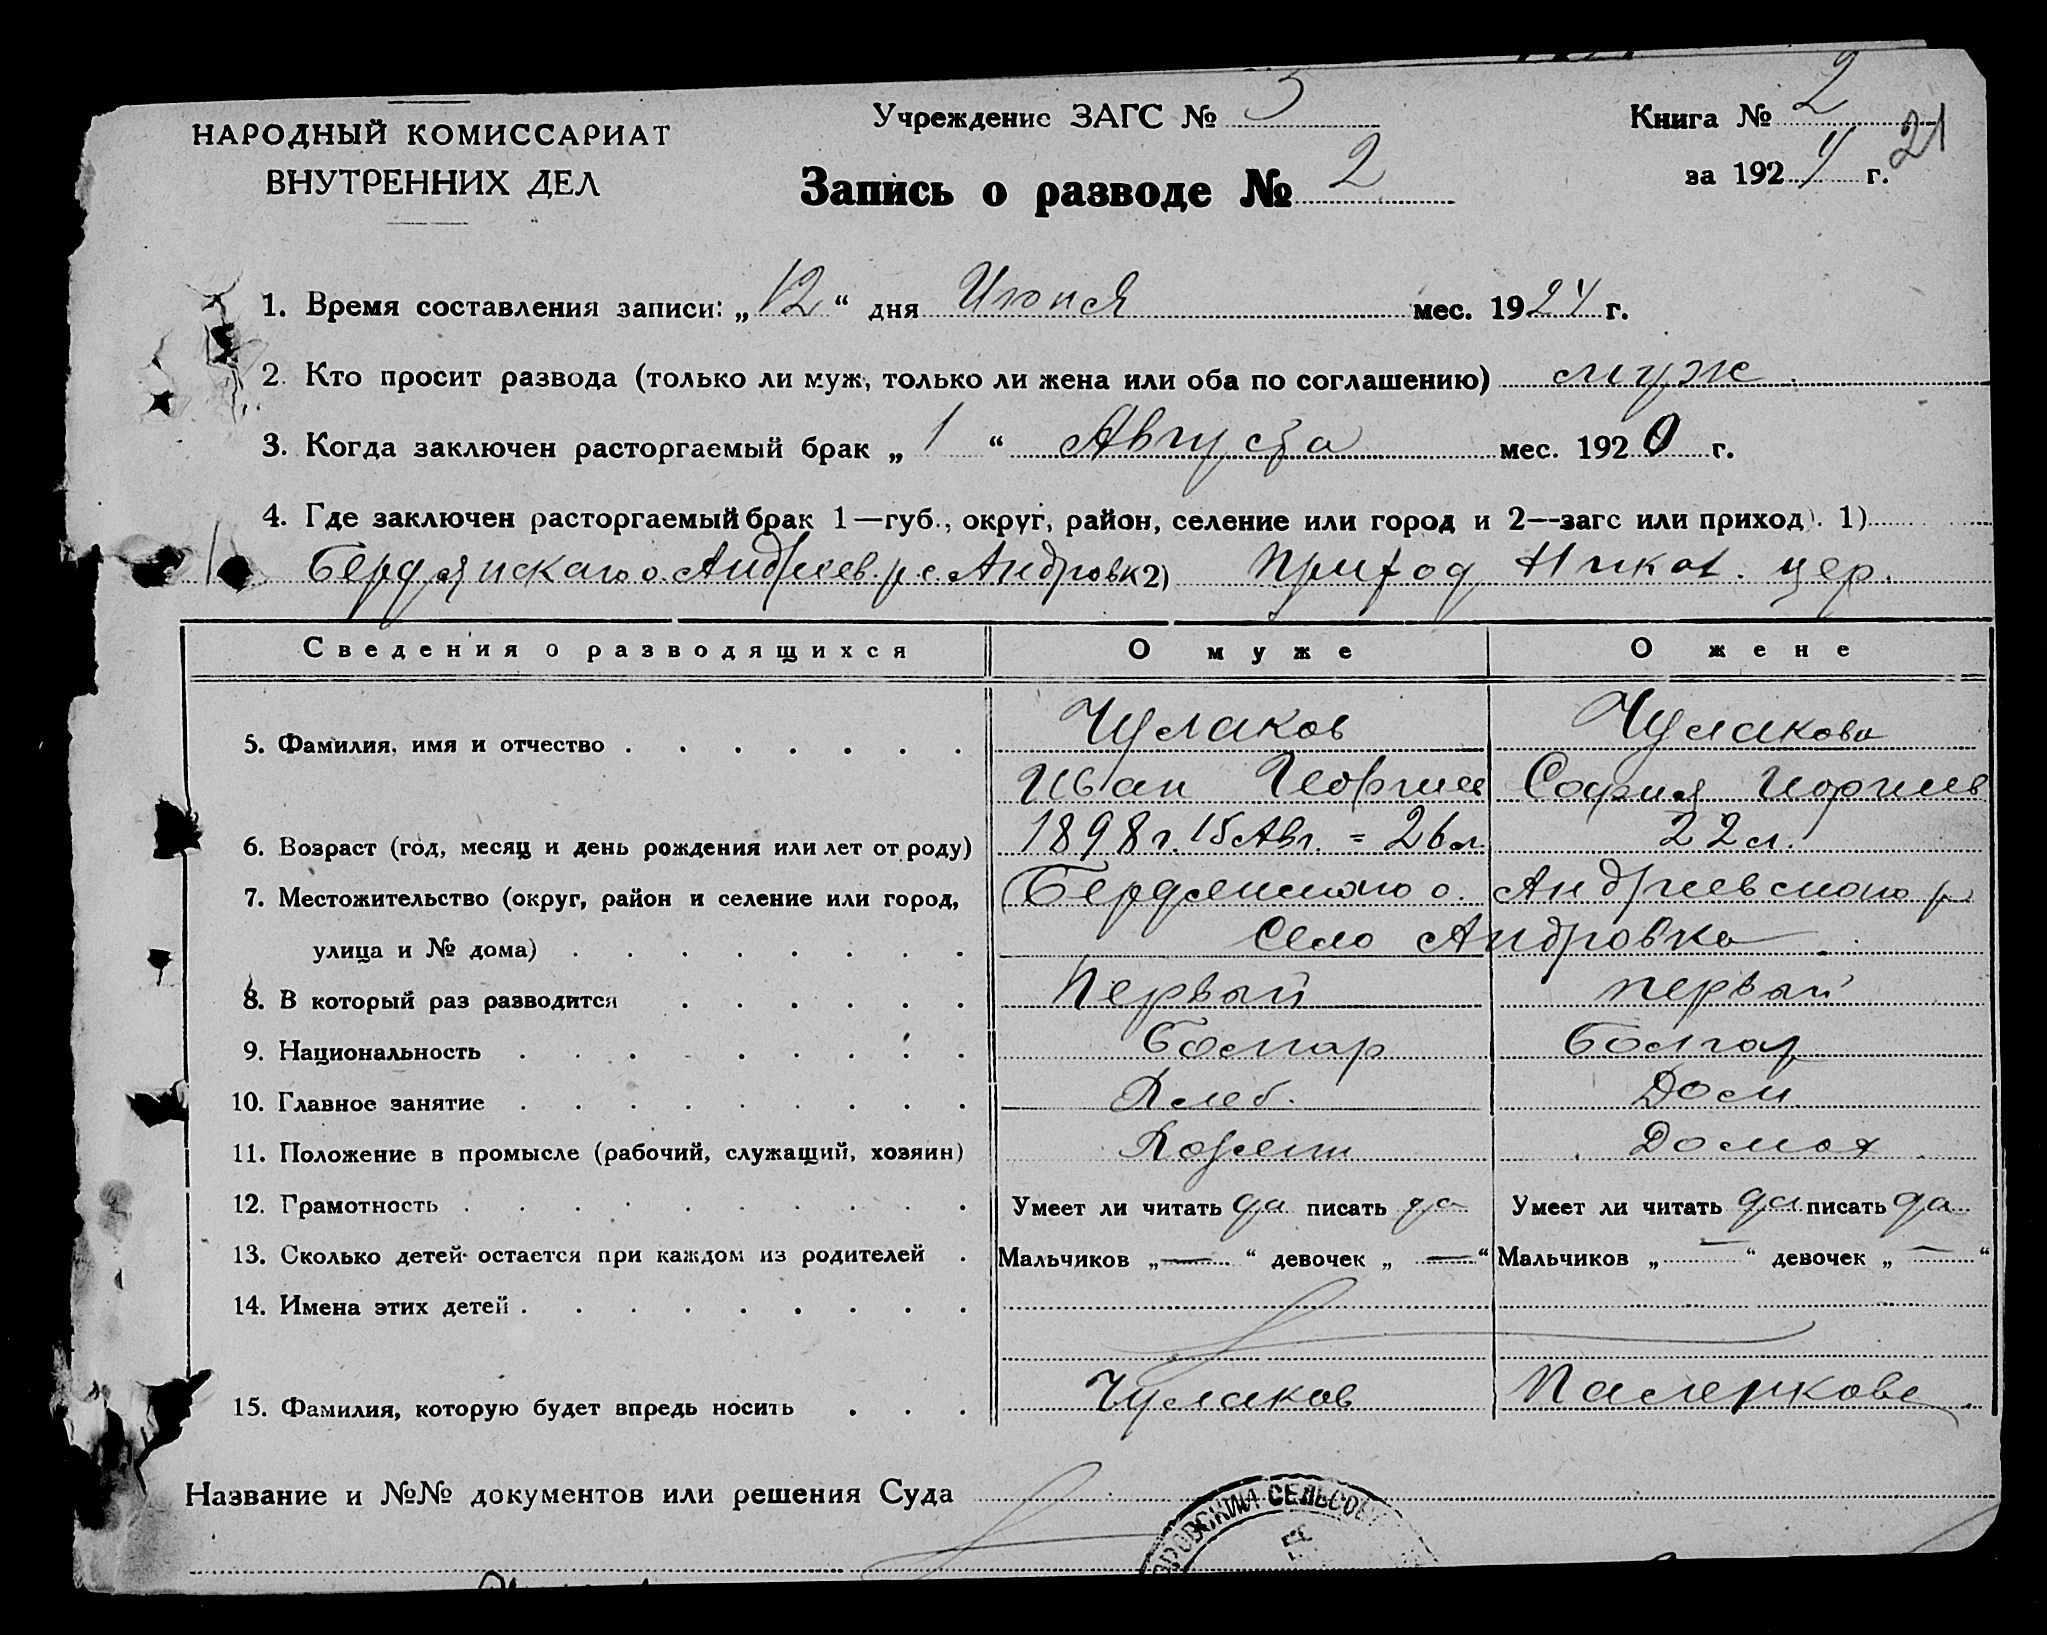 НАРОДНЫЙ КОМИССАРИАТ
ВНУТРЕННИХ ДЕЛ
Учреждение ЗАГС № 3
Запись о разводе № 2
Книга № 2
за 1924 г.
21
1. Время составления записи: „12“ дня Июня мес. 1924 г.
2. Кто просит развода (только ли муж, только ли жена или оба по соглашению) муж.
3. Когда заключен расторгаемый брак „1“ Августа мес. 1920 г.
4. Где заключен расторгаемый брак 1—губ., округ, район, селение или город и 2—загс или приход). 1)
Бердянскаго о. Андриев. р. с. Андровк 2) Приход Никол. цер.
Сведения о разводящихся О муже О жене
5. Фамилия, имя и отчество Чулаков Чулакова
Иван Георгиев София Георгиев
6. Возраст (год, месяц и день рождения или лет от роду) 1898 г. 15 Авг. = 26 л. 22 л.
7. Местожительство (округ, район и селение или город, Бердянского о. Андриевского р
улица и № дома) Село Андровка
8. В который раз разводится Первый первый
9. Национальность болгар болгар
10. Главное занятие Хлеб. Дом
11. Положение в промысле (рабочий, служащий, хозяин) Хозяин Домох
12. Грамотность Умеет ли читать да писать да Умеет ли читать да писать да
13. Сколько детей остается при каждом из родителей Мальчиков „—“ девочек „—“ Мальчиков „—“ девочек „—“
14. Имена этих детей
15. Фамилия, которую будет впредь носить Чулаков
Название и №№ документов или решения Суда
РОВСКИЙ СЕЛЬСОВ